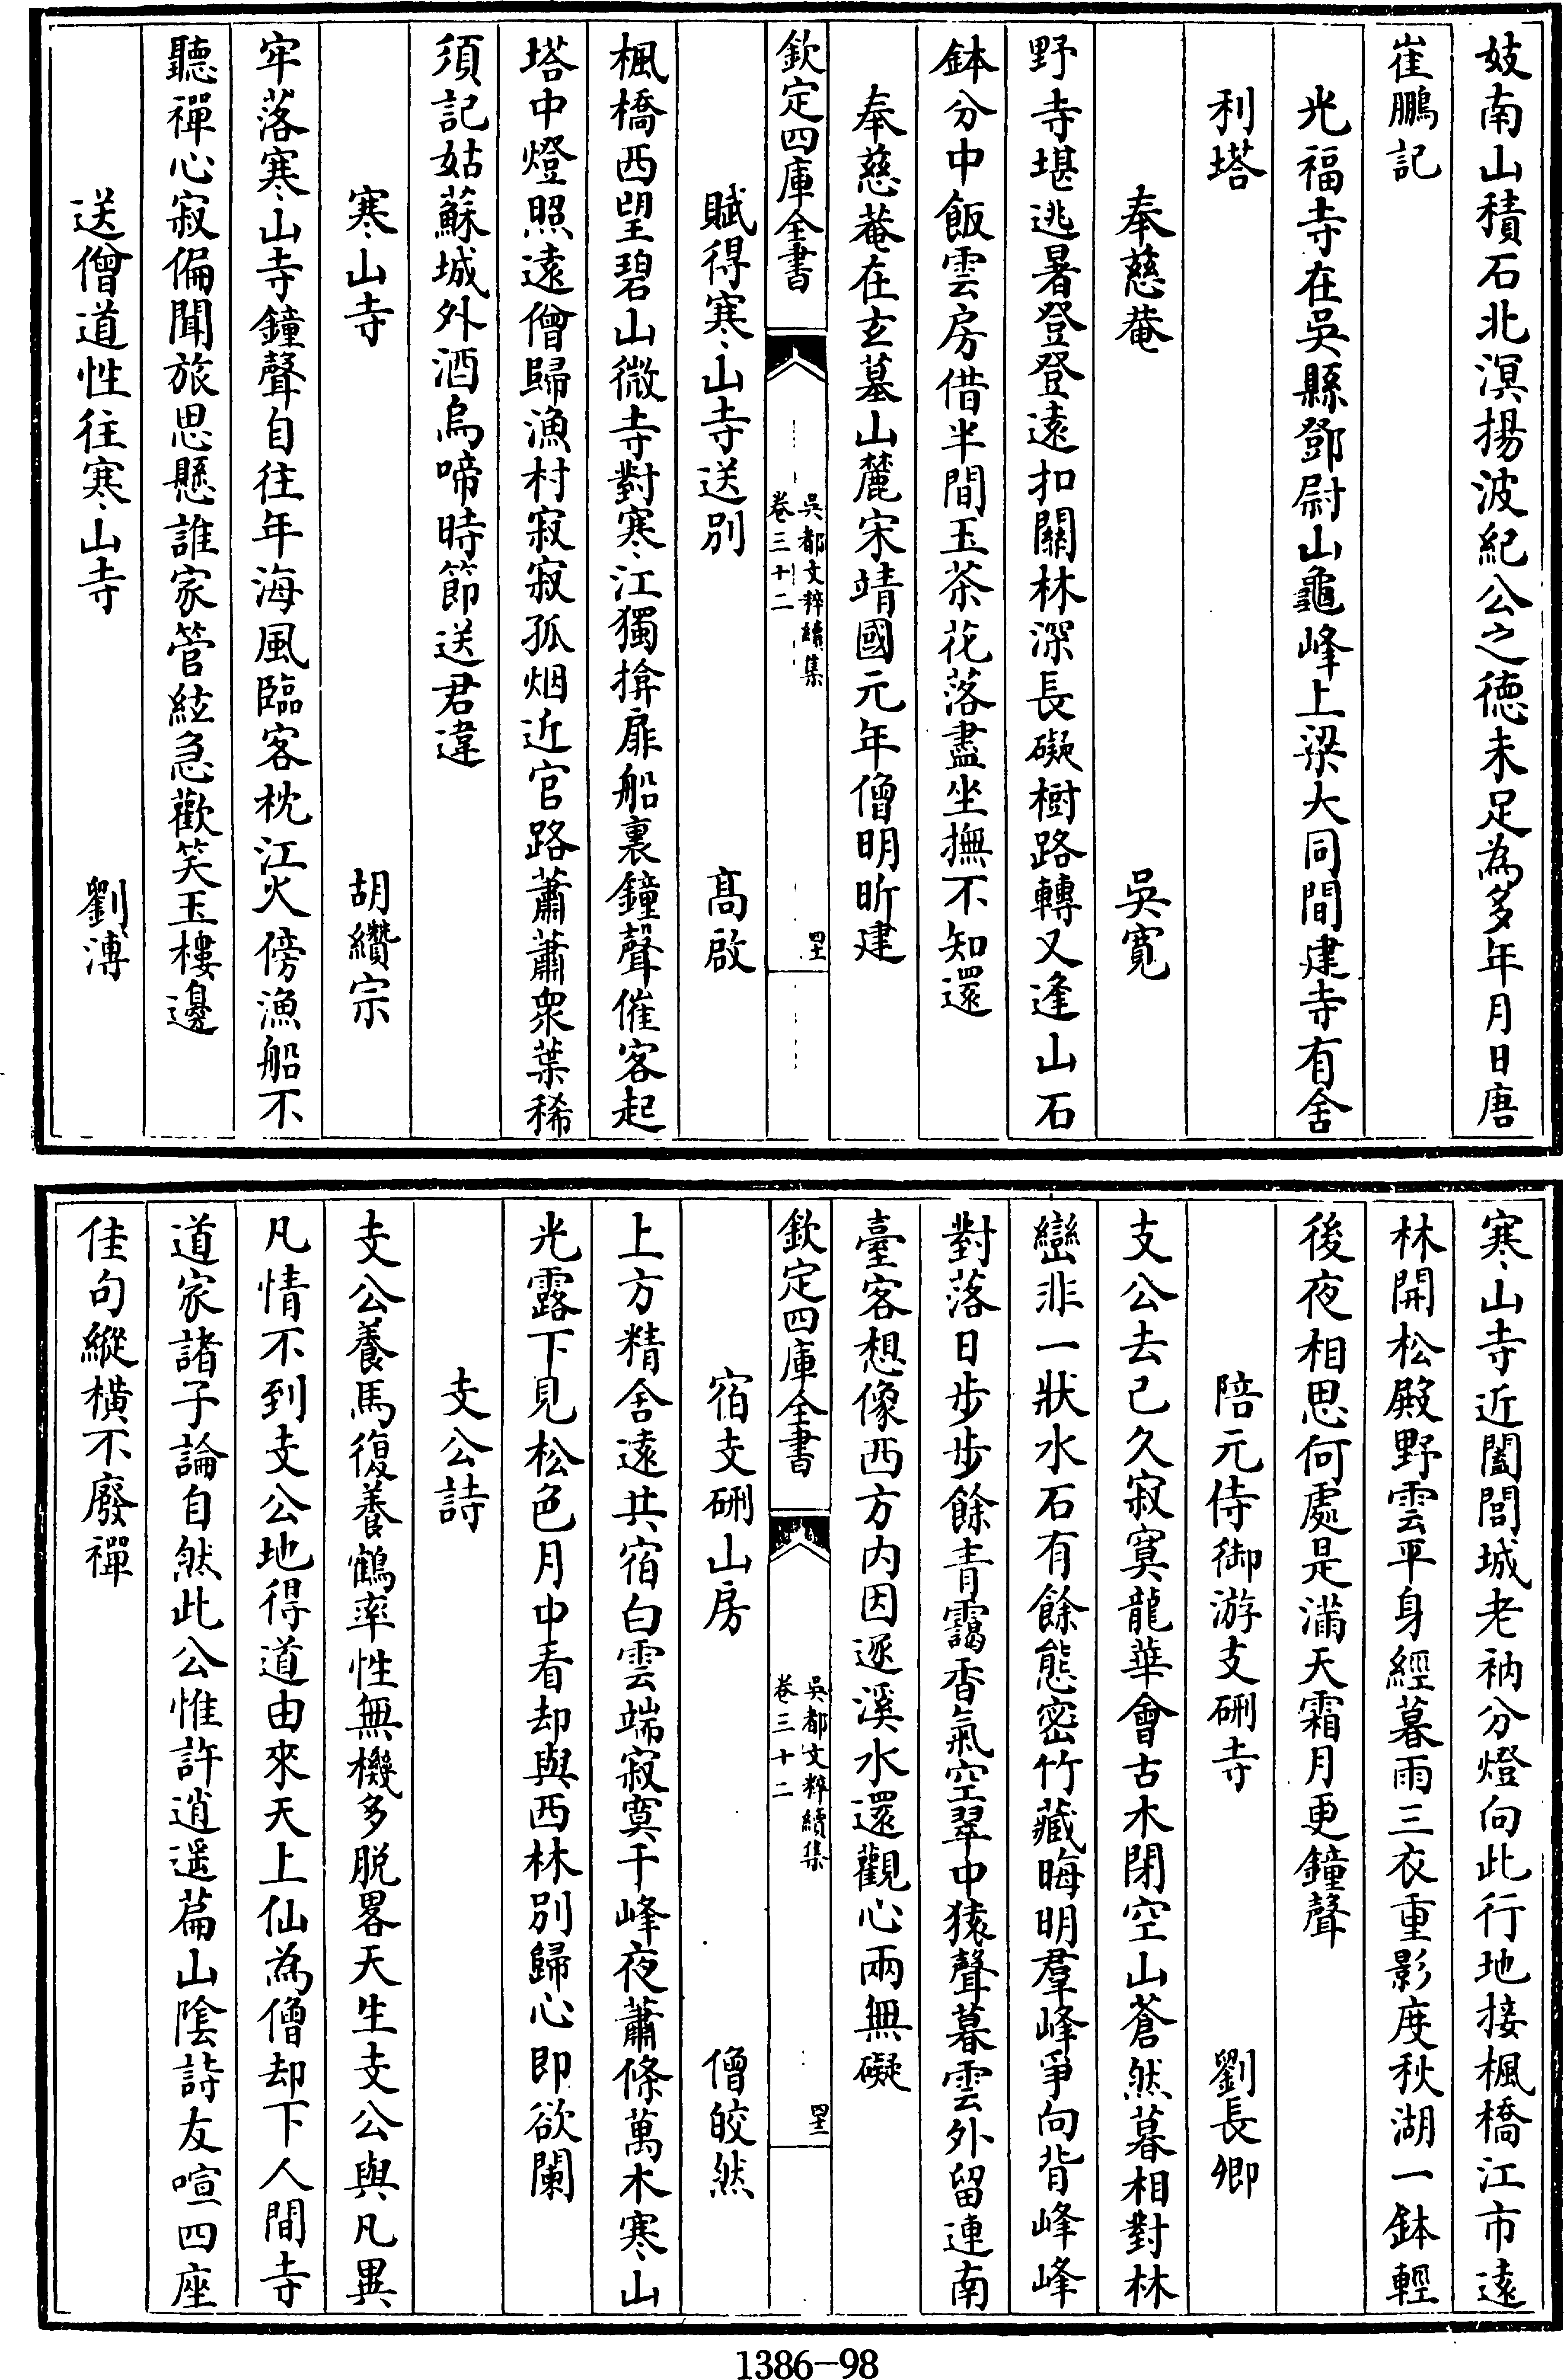 妓南山積石北溟揚波紀公之德未足為多年月日唐
崔鵬記
光福寺在吳縣鄧尉山龜峰上梁大同間建寺有舍
利塔
奉慈菴　吳寬
野寺堪逃暑登登遠扣關林深長礙樹路轉又逢山石
鉢分中飯雲房借半間玉茶花落盡坐撫不知還
奉慈菴在玄墓山麓宋靖國元年僧明昕建
欽定四庫全書　吳都文粹續集　卷三十二　四十一
賦得寒山寺送別　高啟
楓橋西望碧山微寺對寒江獨揜扉船裏鐘聲催客起
塔中燈照遠僧歸漁村寂寂孤烟近官路蕭蕭眾葉稀
須記姑蘇城外酒烏啼時節送君違
寒山寺　胡纘宗
牢落寒山寺鐘聲自往年海風臨客枕江火傍漁船不
聽禪心寂偏聞旅思懸誰家管絃急歡笑玉樓邊
送僧道性往寒山寺　劉溥
寒山寺近闔閭城老衲分燈向此行地接楓橋江市遠
林開松殿野雲平身經暮雨三衣重影度秋湖一鉢輕
後夜相思何處是滿天霜月更鐘聲
陪元侍御游支硎寺　劉長卿
支公去已久寂寞龍華會古木閉空山蒼然暮相對林
巒非一狀水石有餘態密竹藏晦明羣峰爭向背峰峰
對落日步步餘青靄香氣空翠中猿聲暮雲外留連南
臺客想像西方内因逐溪水還觀心兩無礙
欽定四庫全書　吳都文粹續集　卷三十二　四十二
宿支硎山房　僧皎然
上方精舍遠共宿白雲端寂寞千峰夜蕭條萬木寒山
光露下見松色月中看却與西林別歸心即欲闌
支公詩
支公養馬復養鶴率性無機多脫畧天生支公與凡異
凡情不到支公地得道由來天上仙為僧却下人間寺
道家諸子論自然此公惟許逍遥篇山陰詩友喧四座
佳句縱橫不廢禪
1386-98